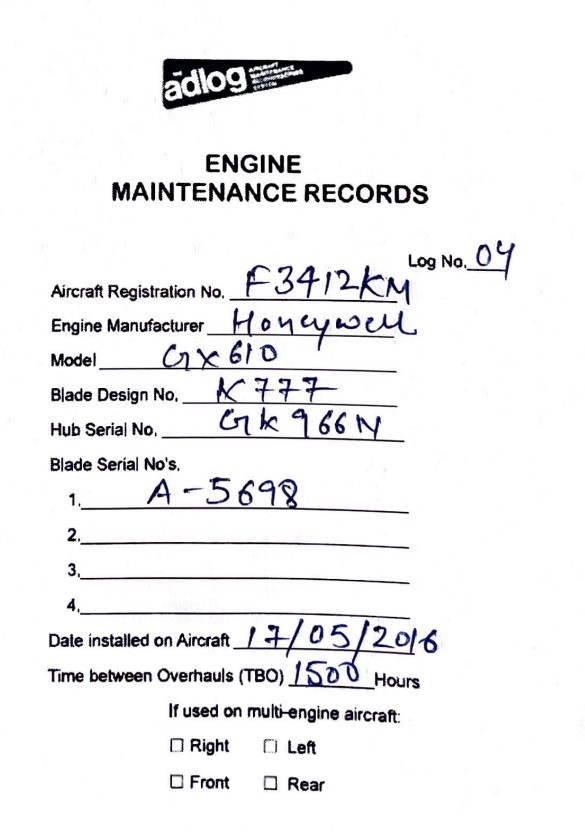 the
adlog AIRCRAFT MAINTENANCE RECORDKEEPING SYSTEM
ENGINE
MAINTENANCE RECORDS
Log No. 04
Aircraft Registration No. F3412KM
Engine Manufacturer Honeywell
Model GX610
Blade Design No. K777
Hub Serial No. GK966N
Blade Serial No's.
1. A-5698
2.
3.
4.
Date installed on Aircraft 17/05/2016
Time between Overhauls (TBO) 1500 Hours
If used on multi-engine aircraft:
☐ Right ☐ Left
☐ Front ☐ Rear